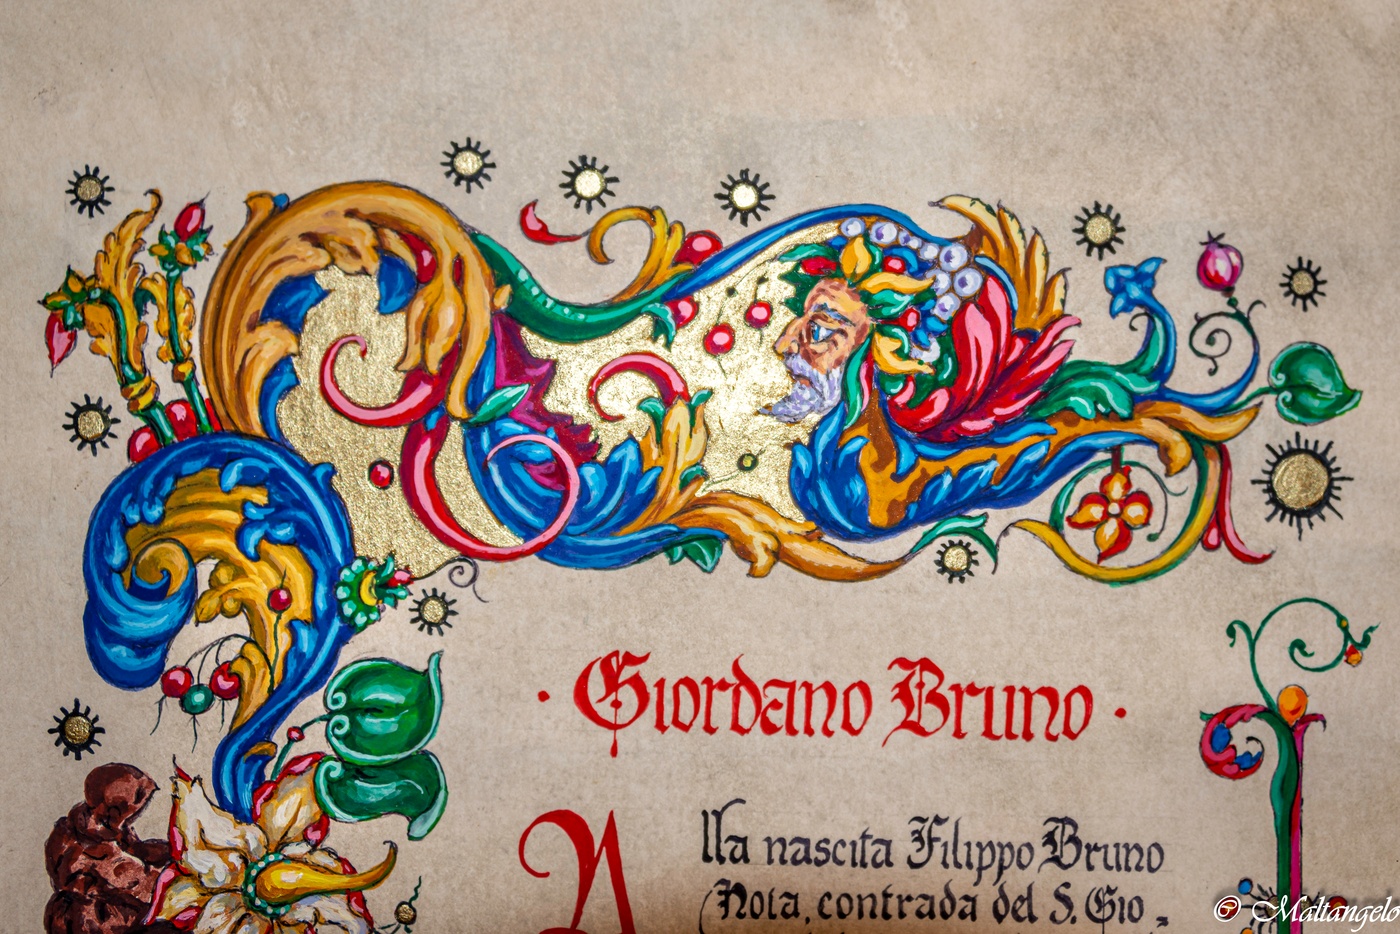 · Giordano Bruno ·
Alla nascita Filippo Bruno
(Nola, contrada del S. Gio-
© Maltangelo